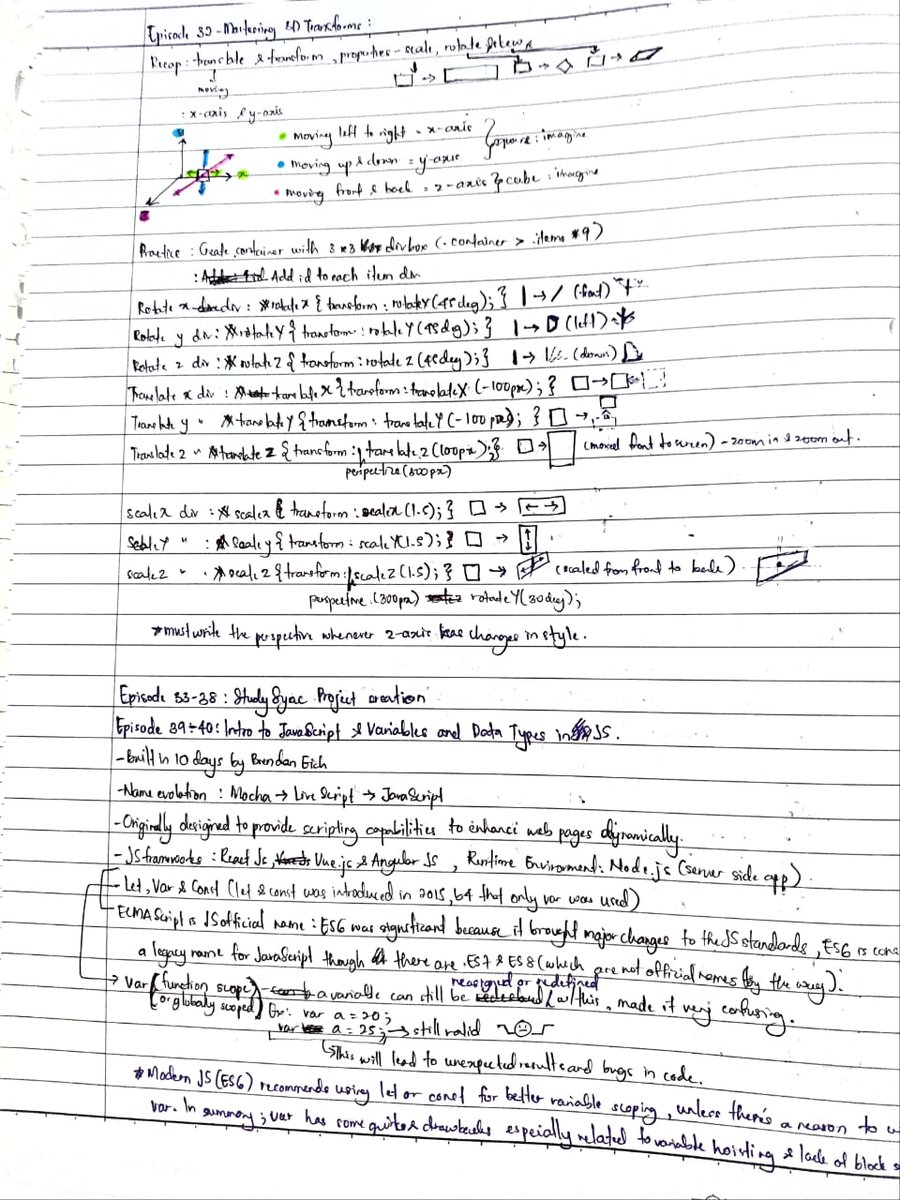 Episode 32 - Mastering 3D Transforms :
Recap : translate & transform, properties - scale, rotate & skew
moving
: x-axis & y-axis
• moving left to right = x-axis } square : imagine
• moving up & down = y-axis
• moving front & back = z-axis } cube : imagine
x
Practice : Create container with 3x3 div box (.container > .items *9)
: Add id to each item div
Rotate x div : #rotateX { transform : rotateY(45deg); } | → / (front)
Rotate y div : #rotateY { transform : rotateY(45deg); } | → (left)
Rotate z div : #rotateZ { transform : rotateZ(45deg); } | → (down)
Translate x div : #translateX { transform : translateX(-100px); } □ → □
Translate y " #translateY { transform : translateY(-100px); } □ →
Translate z " #translateZ { transform : translateZ(100px); } □ → (moved front to screen) - zoom in & zoom out.
perspective(300px)
scalex div : #scalex { transform : scalex(1.5); } □ →
ScaleY " : #Scaley { transform : scaleY(1.5); } □ →
scalez " : #scaleZ { transform : scaleZ(1.5); } □ → (scaled from front to back)
perspective (300px) rotateY(30deg);
*must write the perspective whenever z-axis changes in style.
Episode 33-38 : StudySync Project creation
Episode 39-40 : Intro to JavaScript & Variables and Data Types in JS.
- Built in 10 days by Brendan Eich
- Name evolution : Mocha → LiveScript → JavaScript
- Originally designed to provide scripting capabilities to enhance web pages dynamically.
- JS framworks : React Js, Vue.js & Angular JS , Runtime Environment : Node.js (server side app)
- Let, Var & Const (let & const was introduced in 2015, b4 that only var was used)
- ECMAScript is JS official name : ES6 was significant because it brought major changes to the JS standards, ES6 is cons
a legacy name for JavaScript though there are ES7 & ES8 (which are not official names by the way).
reasigned or redefined
→ Var (function scope) - a variable can still be w/ this, made it very confusing.
(or globaly scoped) Ex: var a = 20;
var a = 25; → still valid
↳ This will lead to unexpected results and bugs in code.
* Modern JS (ES6) recommends using let or const for better variable scoping, unless there's a reason to u
var. In summary; var has some quirks & drawbacks especially related to variable hoisting & lack of block s